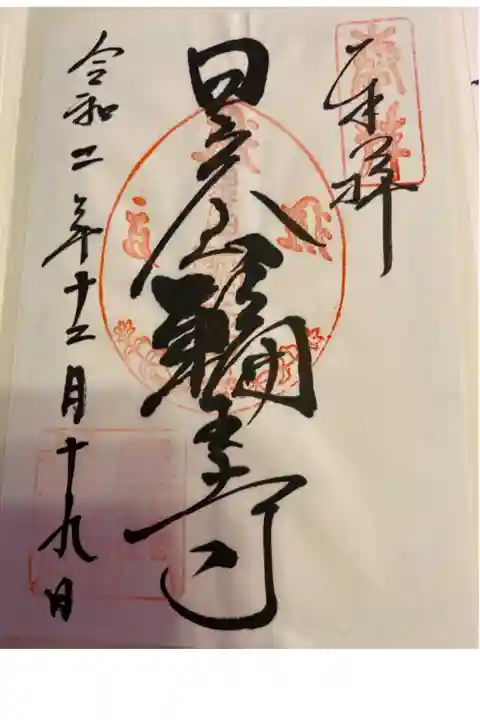 奉拝
日光山輪王寺
令和二年十二月十九日